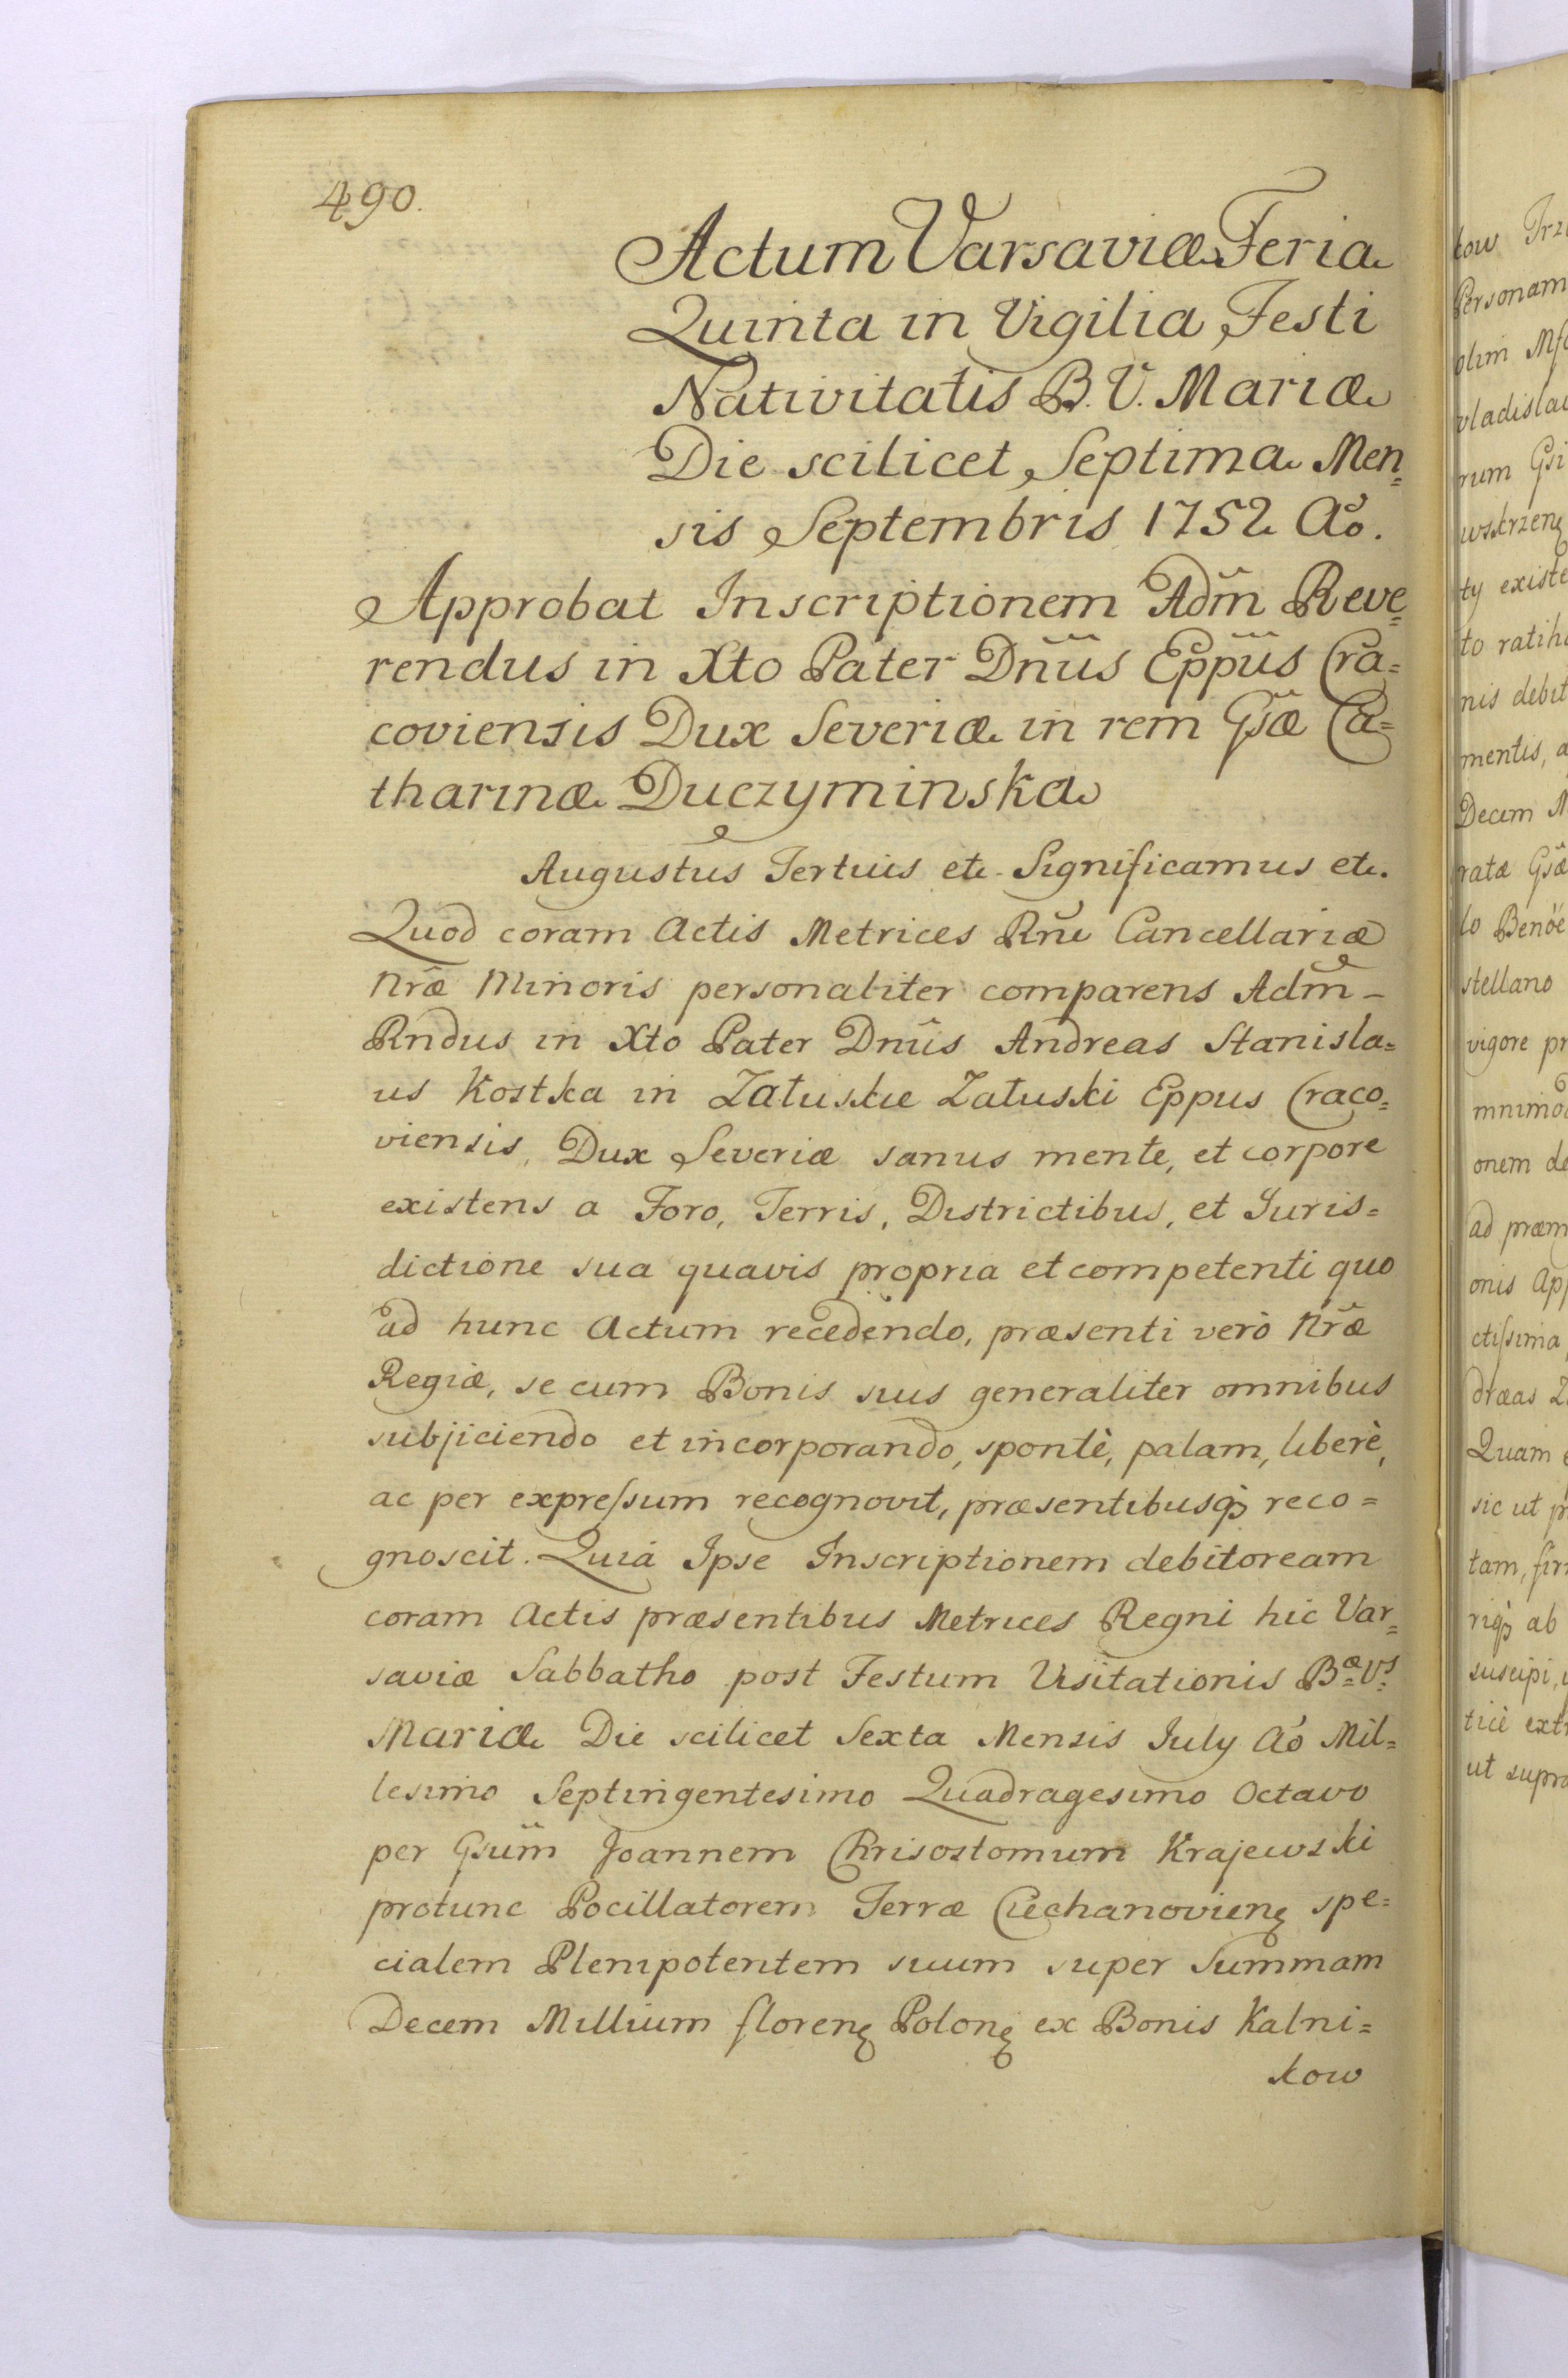 490.
Actum Varsaviæ Feria
Quinta in Vigilia Festi
Nativitatis B. V. Mariæ
Die scilicet Septima Men=
sis Septembris 1752 Aõ.
Approbat Inscriptionem Adm̃ Reve=
rendus in Xto Pater Dñus Eppũs Cra=
coviensis Dux Severiæ in rem Gsæ̃ Ca=
tharinæ Duczyminska
Augustus Tertius etc. Significamus etc.
Quod coram Actis Metrices Rñi Cancellariæ
Nræ̃ Minoris personaliter comparens Adm̃
Rndus in Xto Pater Dnũs Andreas Stanisla=
us Kostka in Załuskie Załuski Eppus Craco=
viensis, Dux Severiæ sanus mente, et corpore
existens a Foro, Terris, Districtibus, et Juris=
dictione sua quavis propria et competenti quo
ad hunc Actum recedendo, præsenti verò Nræ̃
Regiæ, se cum Bonis suis generaliter omnibus
subjiciendo et incorporando, spontè, palam, liberè,
ac per expreſsum recognovit, præsentibusq́ꝫ reco=
gnoscit. Quia Ipse Inscriptionem debitoream
coram Actis præsentibus Metrices Regni hic Var=
saviæ Sabbatho post Festum Visitationis Bæ Vs
Mariæ Die scilicet Sexta Mensis July Aõ Mil=
lesimo Septingentesimo Quadragesimo Octavo
per Gsum̃ Joannem Chrisostomum Krajewski
protunc Pocillatorem Terræ Ciechanovienę spe=
cialem Plenipotentem suum super Summam
Decem Millium florenę Polonę ex Bonis Kalni=
kow
kow
Personam
olim
vladislai
rum
ty
to
nis
mentis,
Decem
ratæ
lo
stellano
vigore
onem
ad
onis
ctiſsima
Quam
sic ut
tam,
ab
suscipi,
ut supra